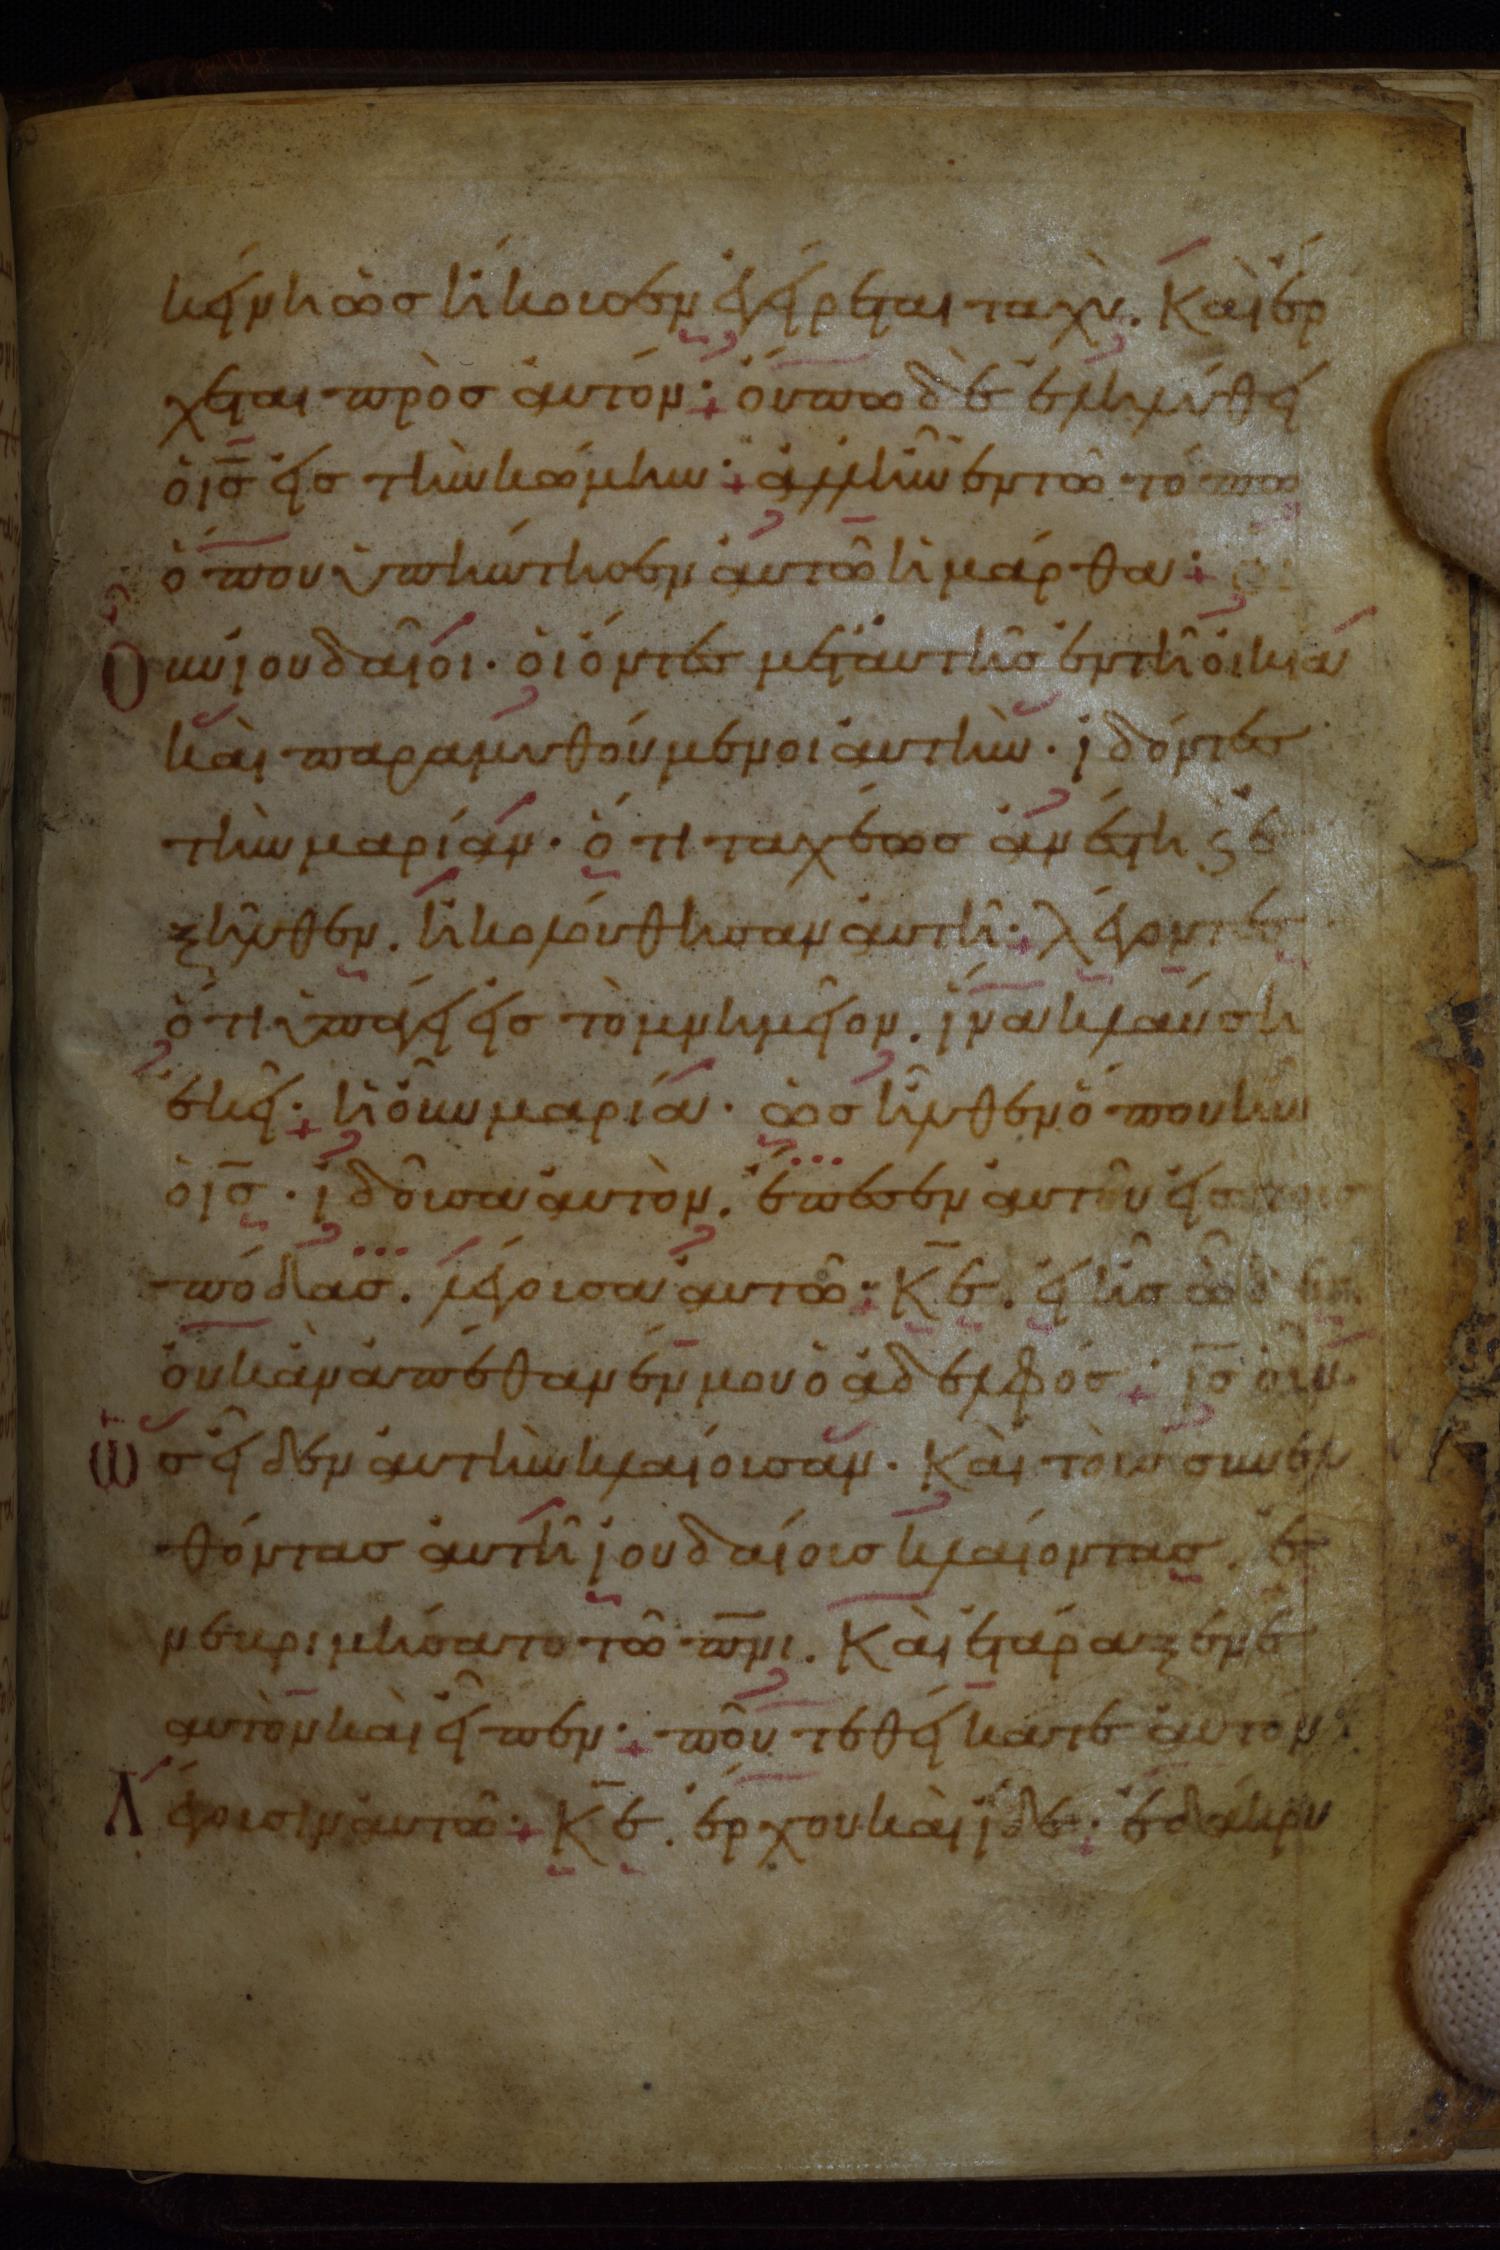 κείνη ὡς ἤκουσεν ἐγείρεται ταχύ. Καὶ ἔρ
χεται πρὸς αὐτόν· οὔπω δὲ ἐληλύθει
ὁ ἰς εἰς τὴν κώμην· ἀλλ' ἦν ἐν τῶ τόπω
ὅπου ὑπήντησεν αὐτῶ ἡ μάρθα·
Ὁ κύ ἰουδαῖοι. οἱ ὄντες μετ' αὐτῆς ἐν τῆ οἰκία
καὶ παραμυθούμενοι αὐτήν. ἰδόντες
τὴν μαρίαν. ὅτι ταχέως ἀνέστη ϛ ἐ
ξῆλθεν. ἠκολούθησαν αὐτῆ· λέγοντες
ὅτι ὑπάγει εἰς τὸ μνημεῖον. ἵνα κλαύση
ἐκεῖ· ἡ οὖν μαρία. ὡς ἦλθεν ὅπου ἦν
ὁ ἰς. ἰδοῦσα αὐτὸν. ἔπεσεν αὐτοῦ εἰς τοὺς
πόδας. λέγουσα αὐτῶ· Κε. εἰ ἦς ὧδε
οὐκ ἂν ἀπέθανέν μου ὁ ἀδελφός· ἰς οὖν.
Ὡς εἶδεν αὐτὴν κλαίουσαν. Καὶ τοὺς συνελ
θόντας αὐτῆ ἰουδαίους κλαίοντας. ἐ
νεβριμήσατο τῶ πνι. Καὶ ἐτάραξεν ἑ
αυτὸν καὶ εἶπεν· ποῦ τεθείκατε αὐτόν.
Λέγουσιν αὐτῶ· Κε. ἔρχου καὶ ἴδε· ἐδάκρυ